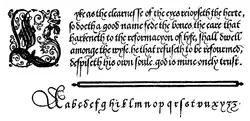 Lyke as the clearnesse of the eyes reioyseth the herte,
so doeth a good name fede the bones. the eare that
harkeneth to the reformacyon of lyfe, shall dwell
amonge the wyse. he that refuseth to be refourmed,
despiseth his own soule. god is mine onely trust.
a a b c d e f g h i k l m n o p q r s t v u x y z